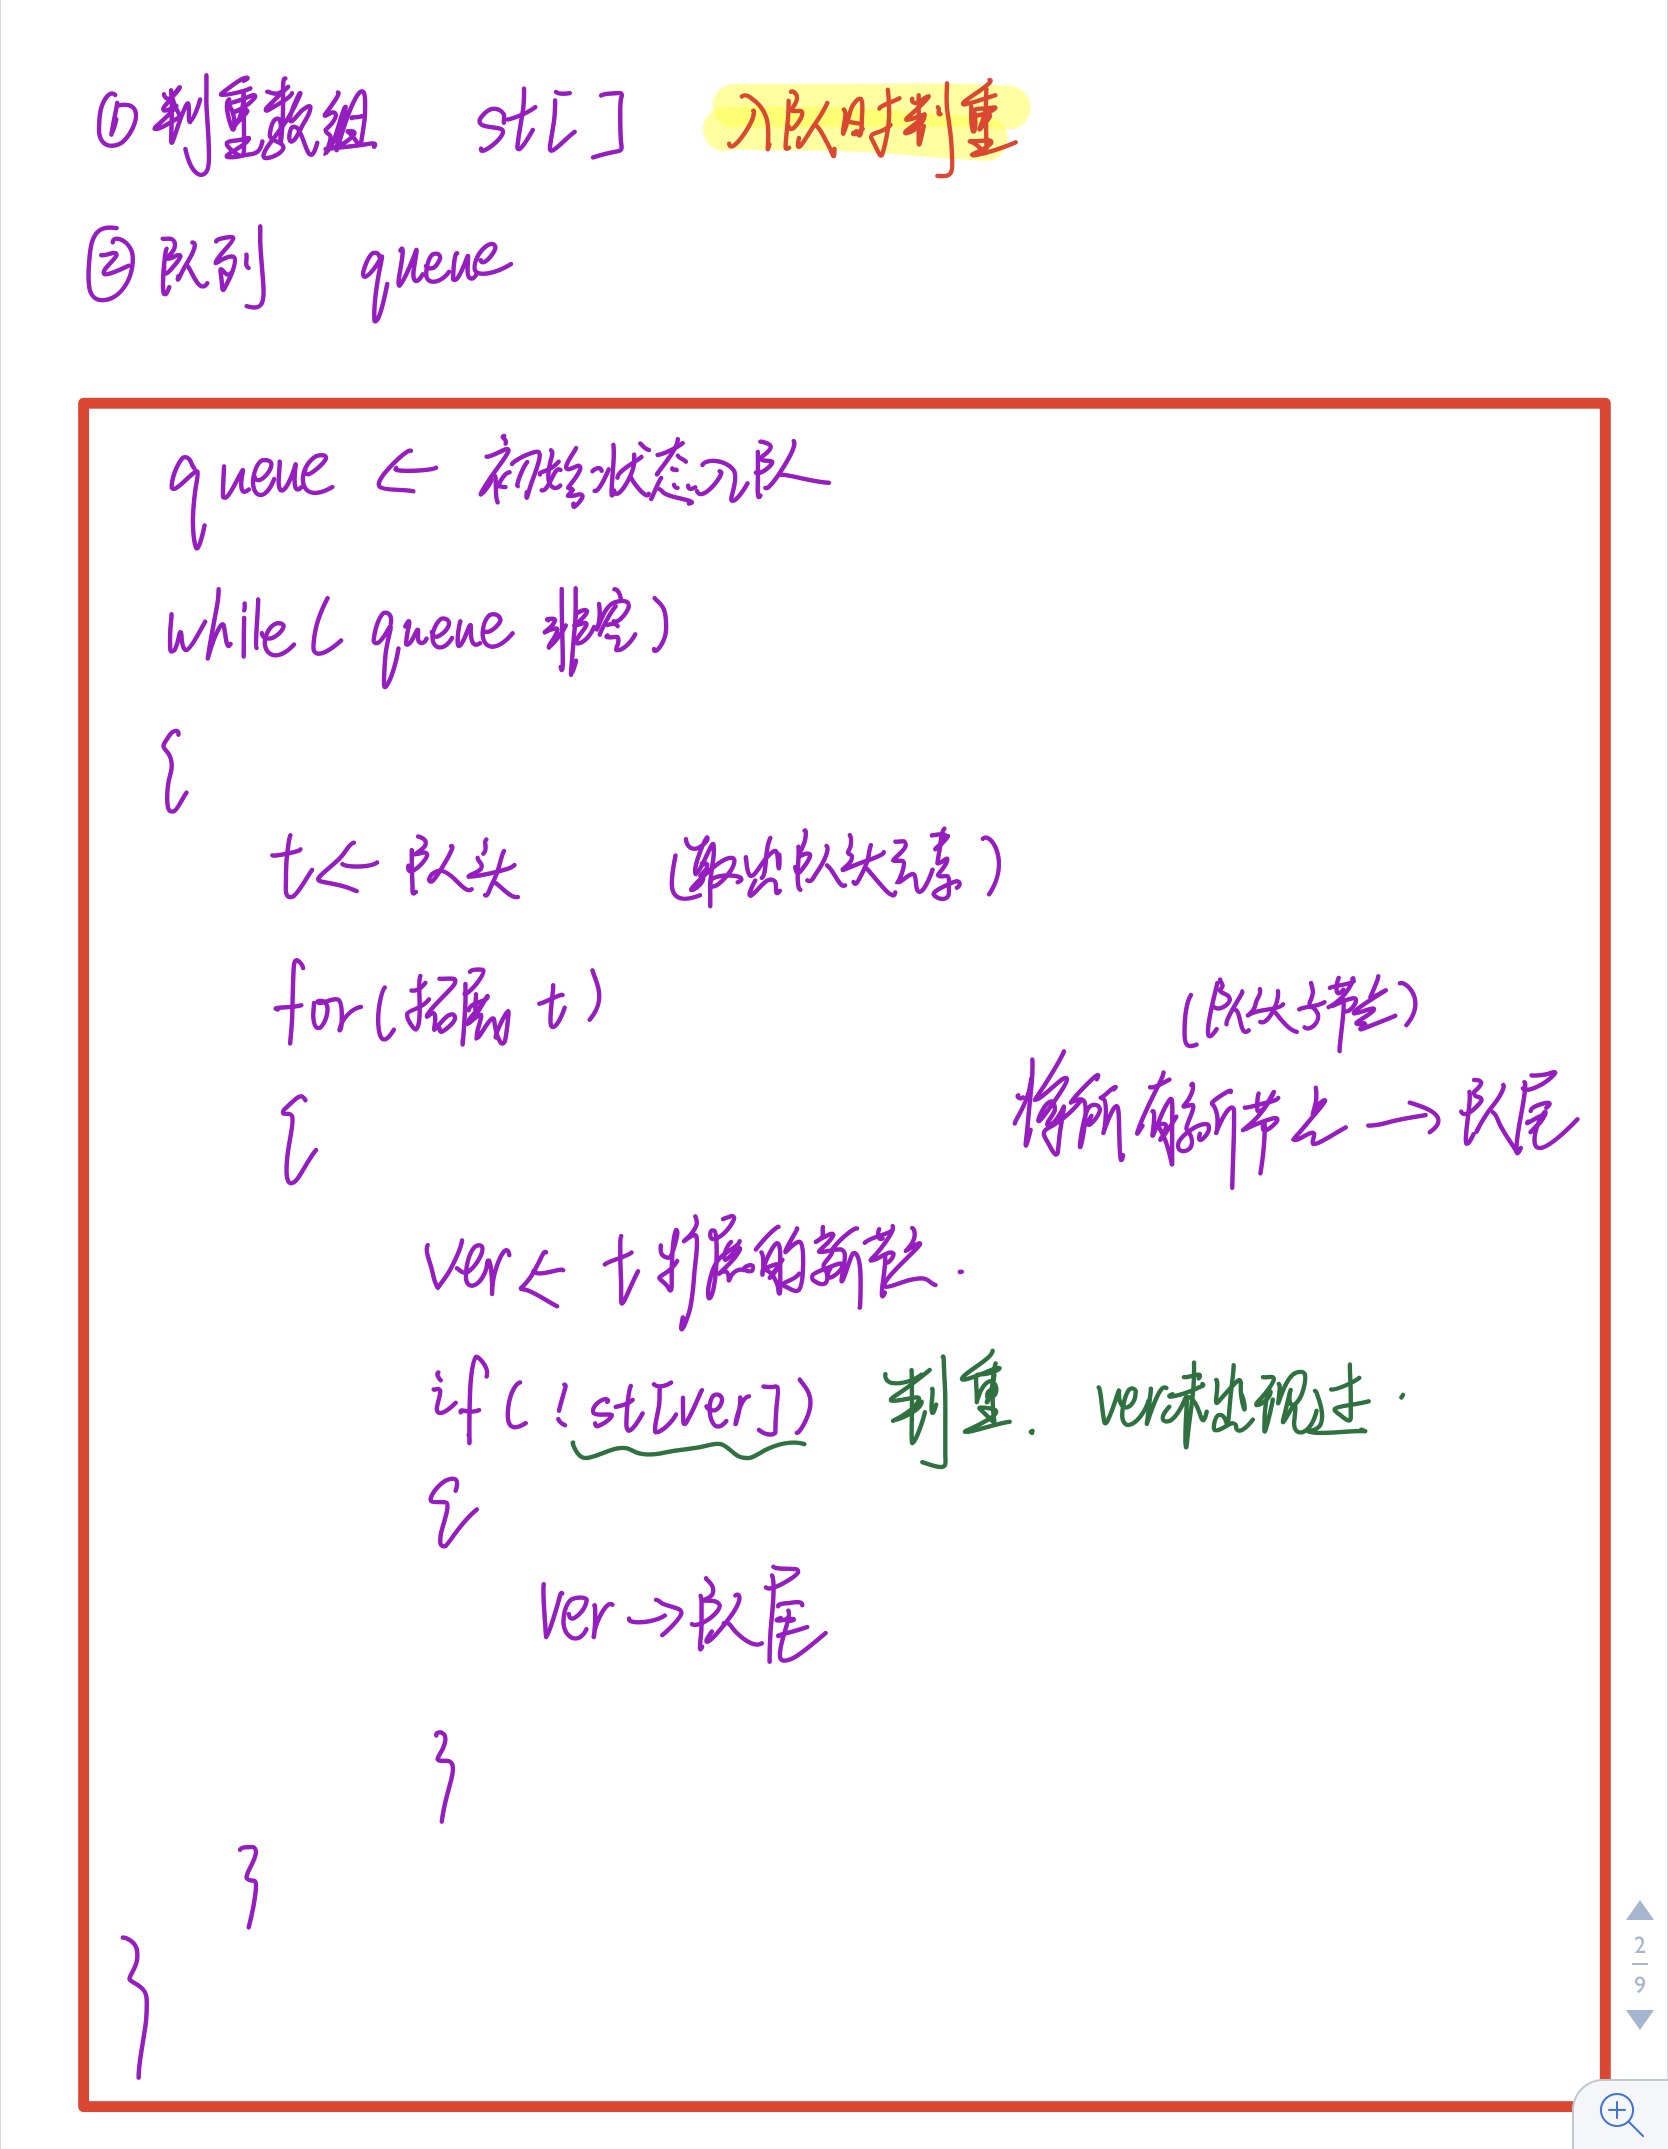 ① 判重数组 st[] 入队时判重
② 队列 queue
queue ← 初始状态入队
while( queue 非空)
{
t ← 队头 (取出队头元素)
for(拓展 t)
(队头子节点)
{
将所有新节点 → 队尾
ver ← t扩展的新节点.
if( !st[ver]) 判重. ver未出现过.
{
ver → 队尾
}
}
}
2
9